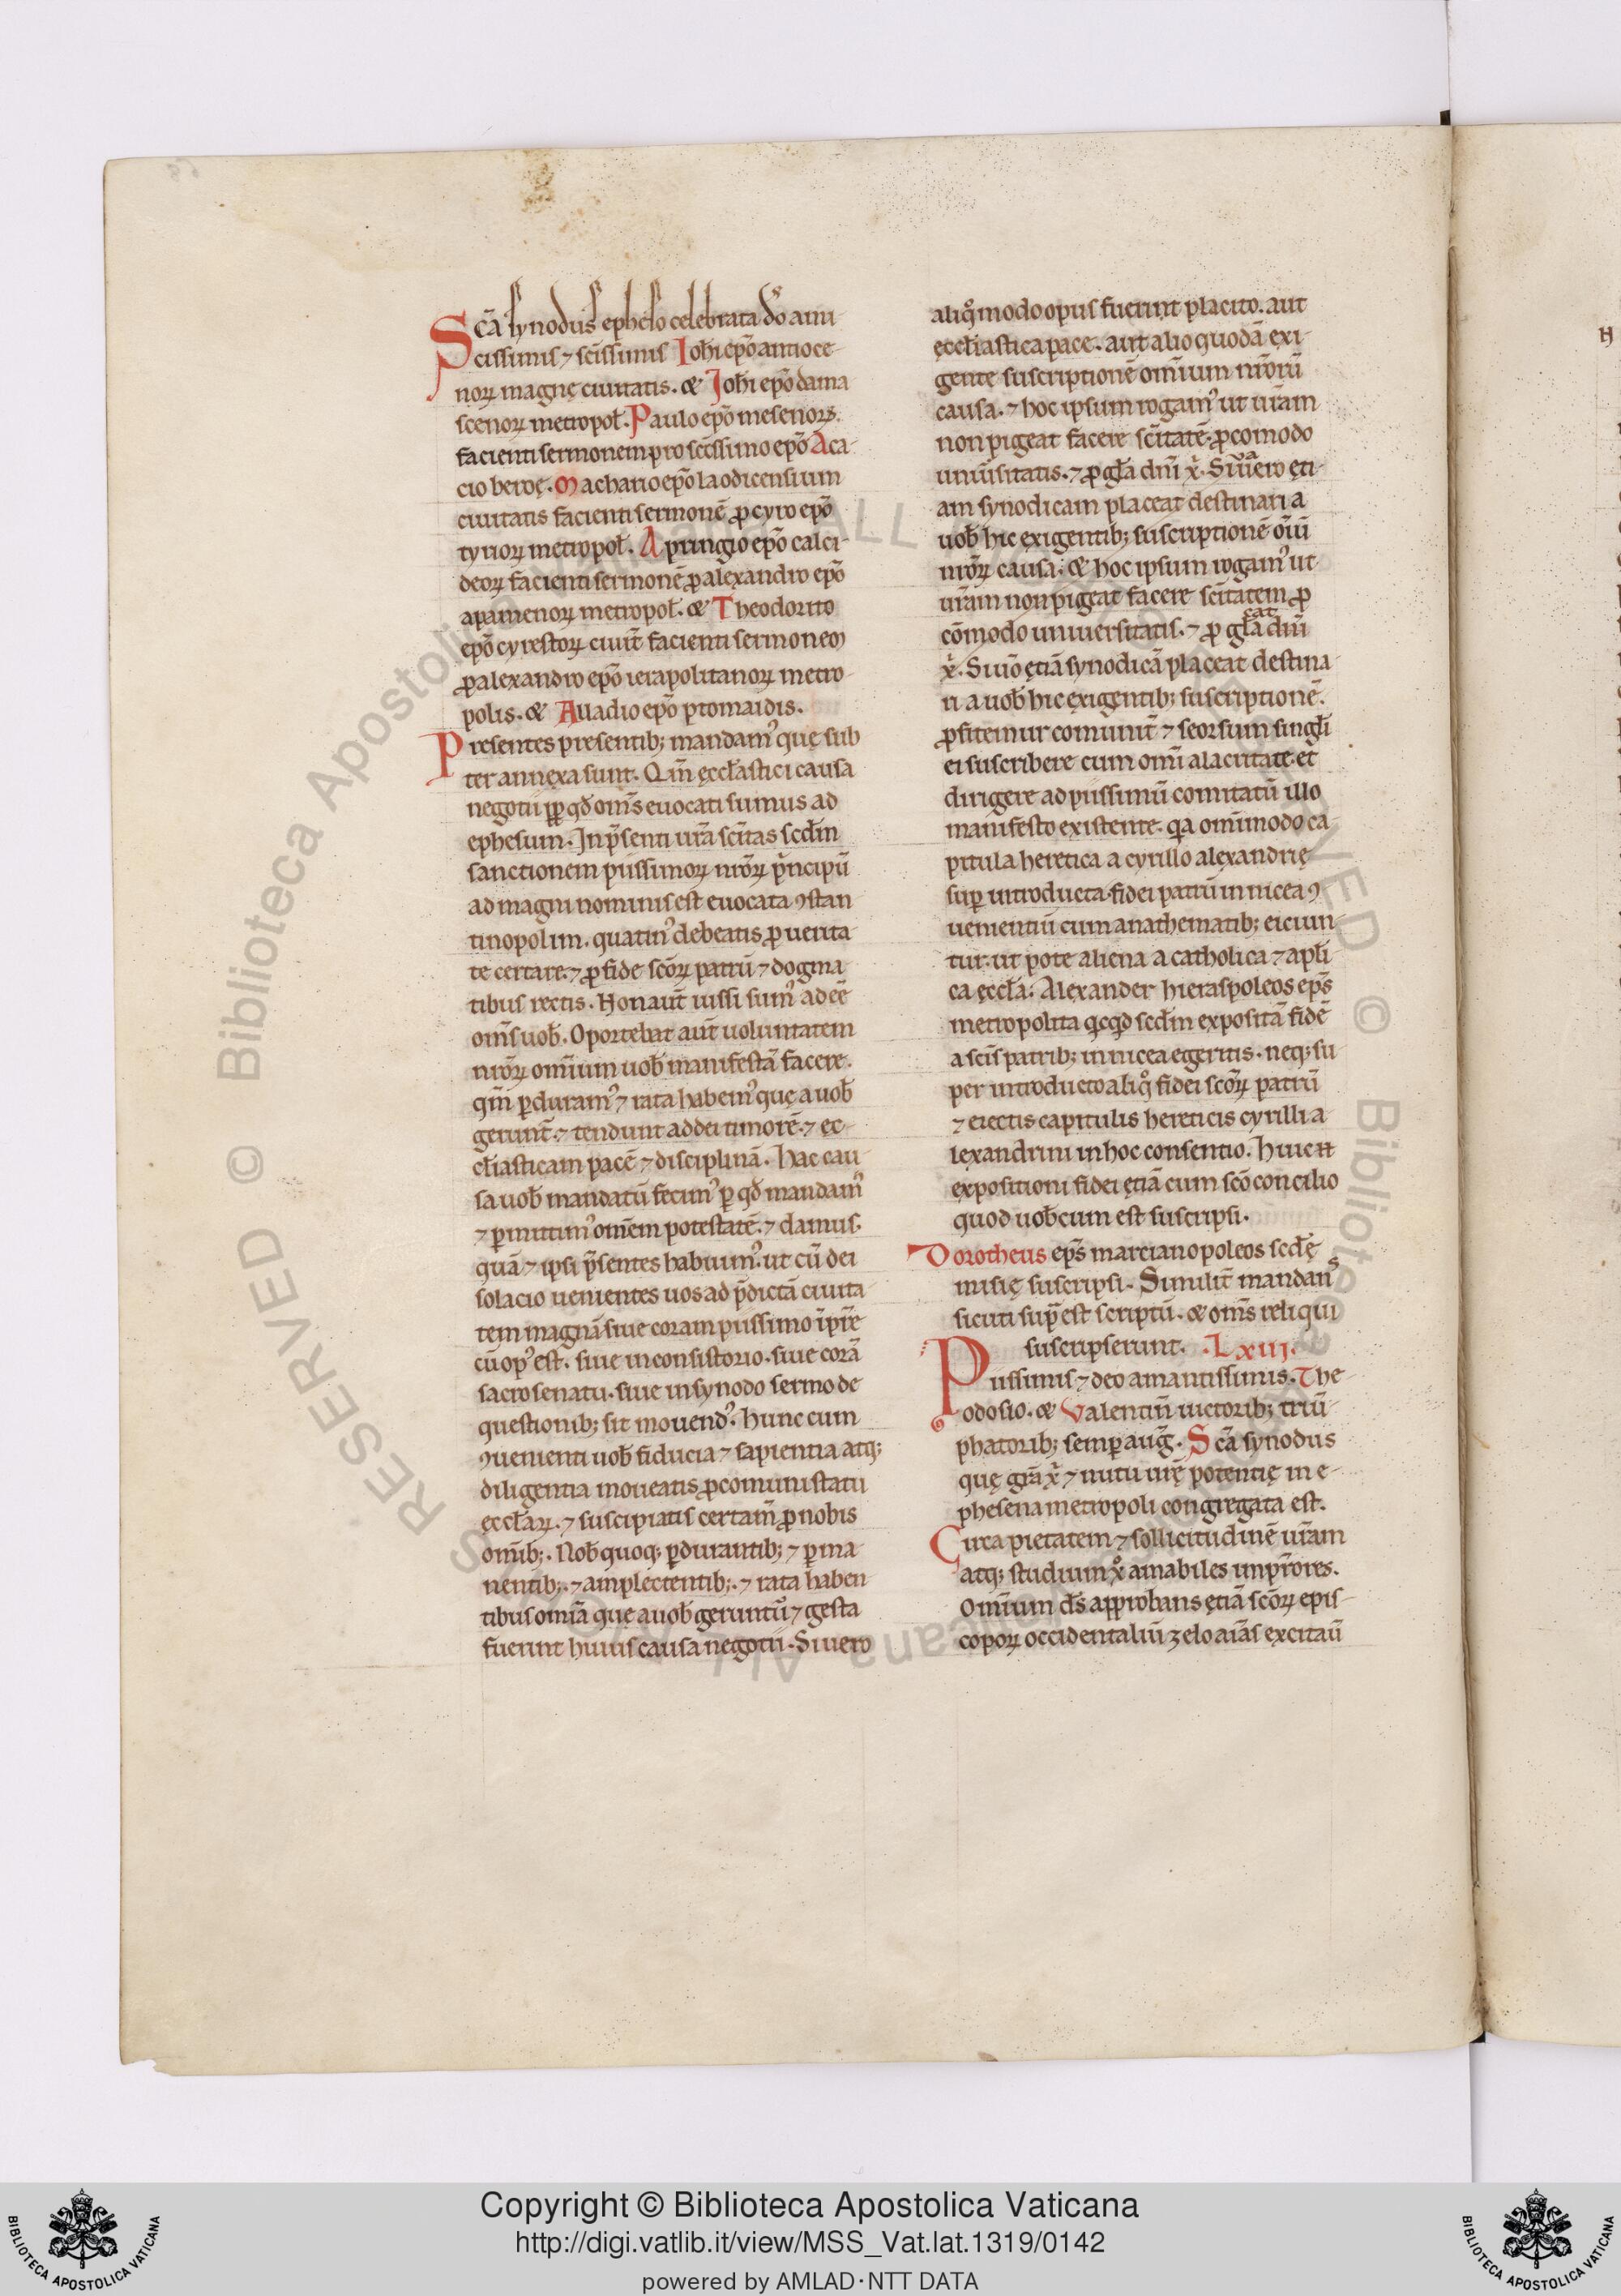 Scā synodus epheso celebrata dō ami
cissimis ⁊ scissimis Iohi epō antioce
noꝝ magnę ciuitatis. & Iohi epō dama
scenoꝝ metropol̄. Paulo epō mesenoꝝ.
facienti sermonem pro scissimo epō Aca
cio beroę. Machario epō laodicensium
ciuitatis facienti sermonē ꝓ cyro epō
tyrioꝝ metropol̄. Apringio epō calci
deoꝝ facienti sermonē ꝓ alexandro epō
apamenoꝝ metropol̄. & Theodorito
epō cyrestoꝝ ciuit̄ facienti sermonem
ꝓ alexandro epō ierapolitanoꝝ metro
polis. & Alladio epō ptomaidis.
Presentes presentib; mandamꝰ quę sub
ter annexa sunt. Qm̄ ęcclastici causa
negotii ꝓp qd̄ om̄s euocati sumus ad
ephesum. In p̄senti urā sc̄itas scdm̄
sanctionem piissimoꝝ nr̄oꝝ p̄ncipū
ad magni nominis est euocata ꝯstan
tinopolim. quatinꝰ debeatis ꝓ uerita
te certare. ⁊ ꝓ fide sc̄oꝝ patrū ⁊ dogma
tibus rectis. Non aut̄ iussi sumꝰ adeē
om̄s uob̄. Oportebat aut̄ uoluntatem
nr̄oꝝ omīum uob̄ manifestā facere.
qm̄ ꝑduramꝰ ⁊ rata habemꝰ quę a uob̄
gerunt̄. ⁊ tendunt ad dei timorē. ⁊ ęc
cl̄iasticam pacē ⁊ disciplinā. Hac cau
sa uob̄ mandatū fecimꝰ ꝑ qd̄ mandamꝰ
⁊ ꝑmittimꝰ omēm potestatē. ⁊ damus.
quā ⁊ ipsi p̄sentes habuimꝰ. ut cū dei
solacio uenientes uos ad p̄dictā ciuita
tem magnā siue coram piissimo īpr̄e
cū opꝰ est. siue in consistorio. siue corā
sacro senatu. siue in synodo sermo de
questionib; sit mouendꝰ. Hunc cum
ꝯuenienti uob̄ fiducia ⁊ sapientia atq;
diligentia moueatis ꝓ comuni statu
ęccl̄aꝝ. ⁊ suscipiatis certam̄ ꝓ nobis
omīb;. Nob̄ quoq; ꝑdurantib; ⁊ ꝑma
nentib;. ⁊ amplectentib;. ⁊ rata haben
tibus omīa que a uob̄ geruntū ⁊ gesta
fuerint huius causa negotii. Si uero
aliqͦ modo opus fuerint placito. aut
ęccl̄iastica pace. aut alio quodā exi
gente suscriptionē omīum nr̄oꝝ
causa. ⁊ hoc ipsum rogamꝰ ut ur̄am
non pigeat facere sc̄itatē. ꝓ comodo
uniūsitatis. ⁊ ꝓ gl̄a dn̄i x̄. Siuero eti
am synodicam placeat destinari a
uob̄ hic exigentib; suscriptionē oīū
nr̄oꝝ causa. & hoc ipsum rogamꝰ ut
ur̄am non pigeat facere sc̄itatem ꝓ
cōmodo uniuersitatis. ⁊ ꝓ gl̄a dn̄i
x̄. Siuō ętiā synodicā placeat destina
ri a uob̄ hic exigentib; suscriptionē.
ꝓfitemur comunit̄ ⁊ seorsum singl̄i
ei suscribere cum omī alacritate. et
dirigere ad piissimū comitatū illo
manifesto existente. qa omīmodo ca
pitula heretica a cyrillo alexandrię
suꝑ introducta fidei patrū in nicea ꝯ
uenientiū cum anathematib; eiciun
tur. ut pote aliena a catholica ⁊ apl̄i
ca ęccl̄a. Alexander hieraspoleos ep̄s
metropolita qcqd scdm̄ expositā fidē
a sc̄is patrib; in nicea egeritis. neq; su
per introducto aliqͦ fidei sc̄oꝝ patrū
⁊ eiectis capitulis hereticis cyrilli a
lexandrini in hoc consentio. Huic
expositioni fidei ętiā cum sc̄o concilio
quod uob̄cum est suscripsi.
Dorotheus ep̄s marcianopoleos scdę
misię suscripsi. Similit̄ mandans
sicuti sup̄ est scriptū. & om̄s reliqui
suscripserunt. .Lxiij.
Piissimis ⁊ deo amantissimis. The
odosio. & Valentin̄ uictorib; triū
phatorib; semꝑ auḡ. Scā synodus
quę gr̄a x̄ ⁊ nutu ur̄ę potentię in e
phesena metropoli congregata est.
Circa pietatem ⁊ sollicitudinē ur̄am
atq; studium xͦ amabiles impr̄ores.
Omīum ds̄ approbans ętiā sc̄oꝝ epis
copoꝝ occidentaliū zelo aīas excitaū
Copyright © Biblioteca Apostolica Vaticana
http://digi.vatlib.it/view/MSS_Vat.lat.1319/0142
powered by AMLAD·NTT DATA